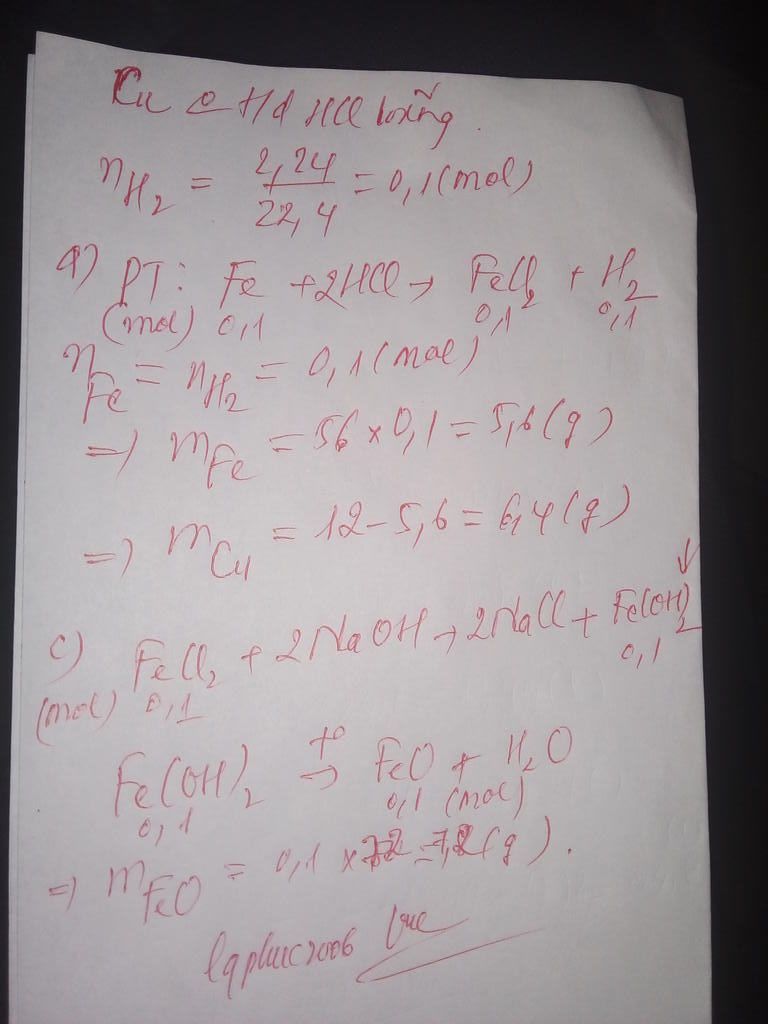 Cu O Hd HCl loãng.
nH₂ = 2,24/22,4 = 0,1 (mol)
a) PT: Fe + 2HCl → FeCl₂ + H₂
(mol) 0,1 0,1 0,1
nFe = nH₂ = 0,1 (mol)
=> mFe = 56 x 0,1 = 5,6 (g)
=> mCu = 12 - 5,6 = 6,4 (g)
c) FeCl₂ + 2NaOH → 2NaCl + Fe(OH)₂ ↓
(mol) 0,1 0,1
Fe(OH)₂ t° → FeO + H₂O
0,1 0,1 (mol)
=> mFeO = 0,1 x 72 = 7,2 (g).
lqphuc2006